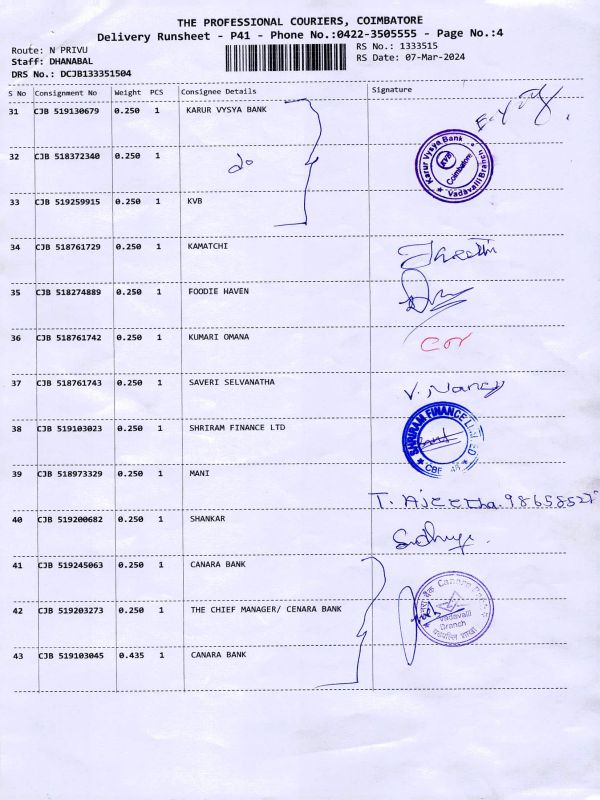 THE PROFESSIONAL COURIERS, COIMBATORE
Delivery Runsheet - P41 - Phone No.:0422-3505555 - Page No.:4
Route: N PRIVU
Staff: DHANABAL
DRS No.: DCJB133351504
RS No.: 1333515
RS Date: 07-Mar-2024
S No Consignment No Weight PCS Consignee Details Signature
31 CJB 519130679 0.250 1 KARUR VYSYA BANK
Karur Vysya Bank KVB Coimbatore Vadavalli Branch
32 CJB 518372340 0.250 1 do
33 CJB 519259915 0.250 1 KVB
34 CJB 518761729 0.250 1 KAMATCHI
35 CJB 518274889 0.250 1 FOODIE HAVEN
36 CJB 518761742 0.250 1 KUMARI OMANA
37 CJB 518761743 0.250 1 SAVERI SELVANATHA V. Nancy
38 CJB 519103023 0.250 1 SHRIRAM FINANCE LTD
SHRIRAM FINANCE LIMITED CBE
39 CJB 518973329 0.250 1 MANI
T. Ajeetha.
40 CJB 519200682 0.250 1 SHANKAR
41 CJB 519245063 0.250 1 CANARA BANK
Canara Bank Vadavalli Branch
42 CJB 519203273 0.250 1 THE CHIEF MANAGER/ CENARA BANK
43 CJB 519103045 0.435 1 CANARA BANK